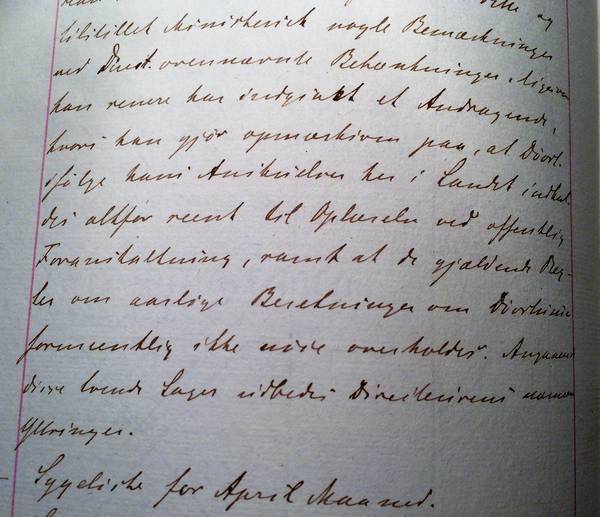 og
tilstillet Ministeriet nogle Bemærkninger
ved Direct. ovennævnte Betænkninger, ligesom
han senere har indgivet et Andragende,
hvori han gjör opmærksom paa, at
ifølge hans Anskuelser her i Landet
des altfor seent til ved offentlig
Foranstaltning, samt at de gjældende Reg-
ler om aarlige Beretninger om
formeentlig ikke nöie overholdes. Angaaende
disse tvende Sager udbedes Directeurens
Yttringer.
Sygeliste for April Maaned.